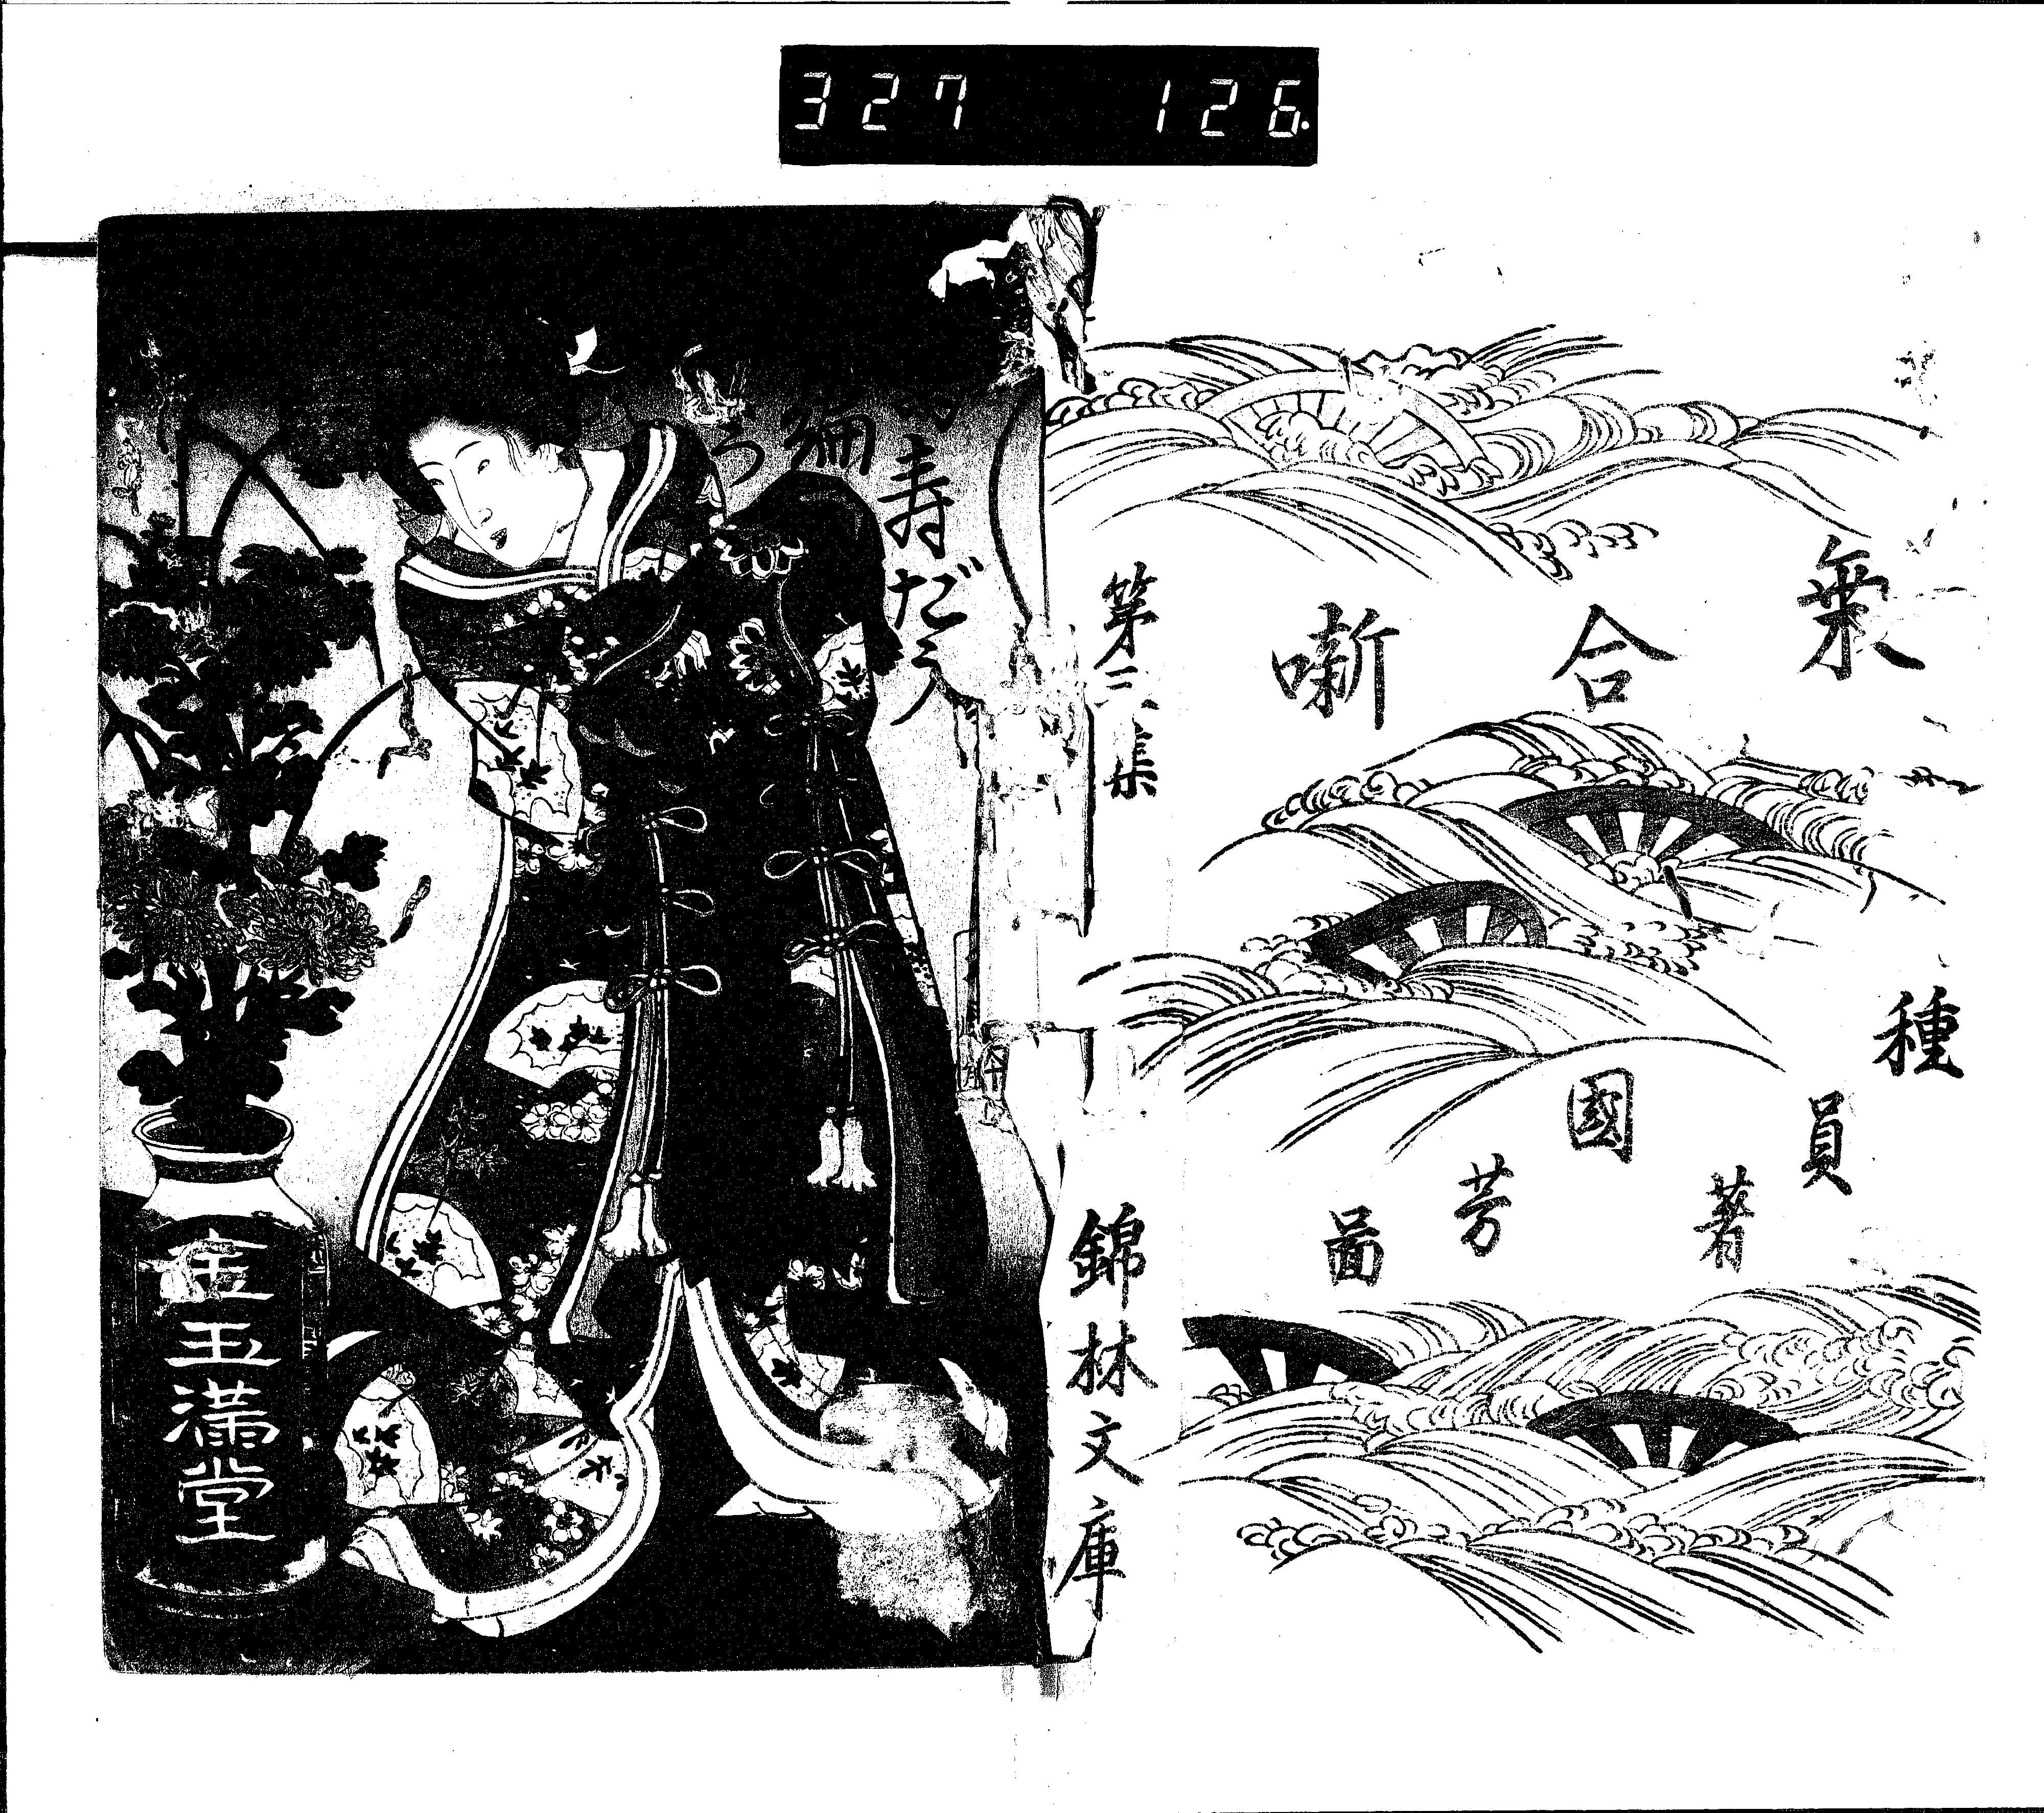 327 126.
合噺
種員著
國芳畵
第三集
錦林文庫
寿だう
編
金玉満堂